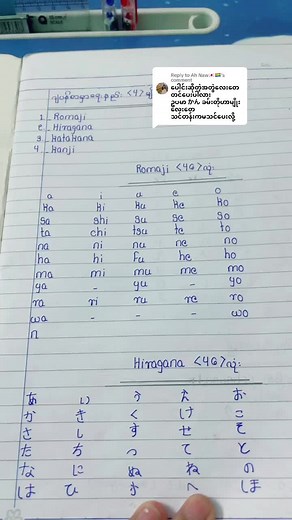 Reply to Ah Naw🇯🇵🇲🇲's comment
ပေါ်င်းဆိုတဲ့အတွဲလေးတေ
တင်ပေးပါလား
ဥပမာ がん ခမ်းတိုဟာမျိုး
လေးတေ့
သင်တန်းကမသင်ပေးလို့
1. Romaji
2. Hiragana
3. Katakana
4. Kanji
Romaji <46> လုံး
a i u e o
Ka Ki Ku Ke Ko
sa shi su se so
ta chi tsu te to
na ni nu ne no
ha hi fu he ho
ma mi mu me mo
ya - yu - yo
ra ri ru re ro
wa - - - wo
n
Hiragana <46> လုံး
あ い う え お
か き く け こ
さ し す せ そ
た ち つ て と
な に ぬ ね の
は ひ ふ へ ほ